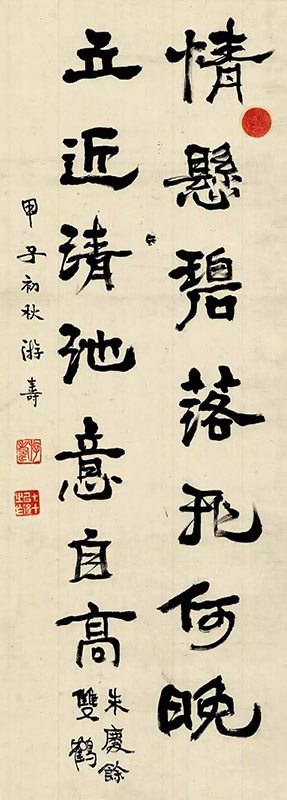 情懸碧落飛何晚
立近清池意自高
朱慶餘
雙鶴
甲子初秋游壽